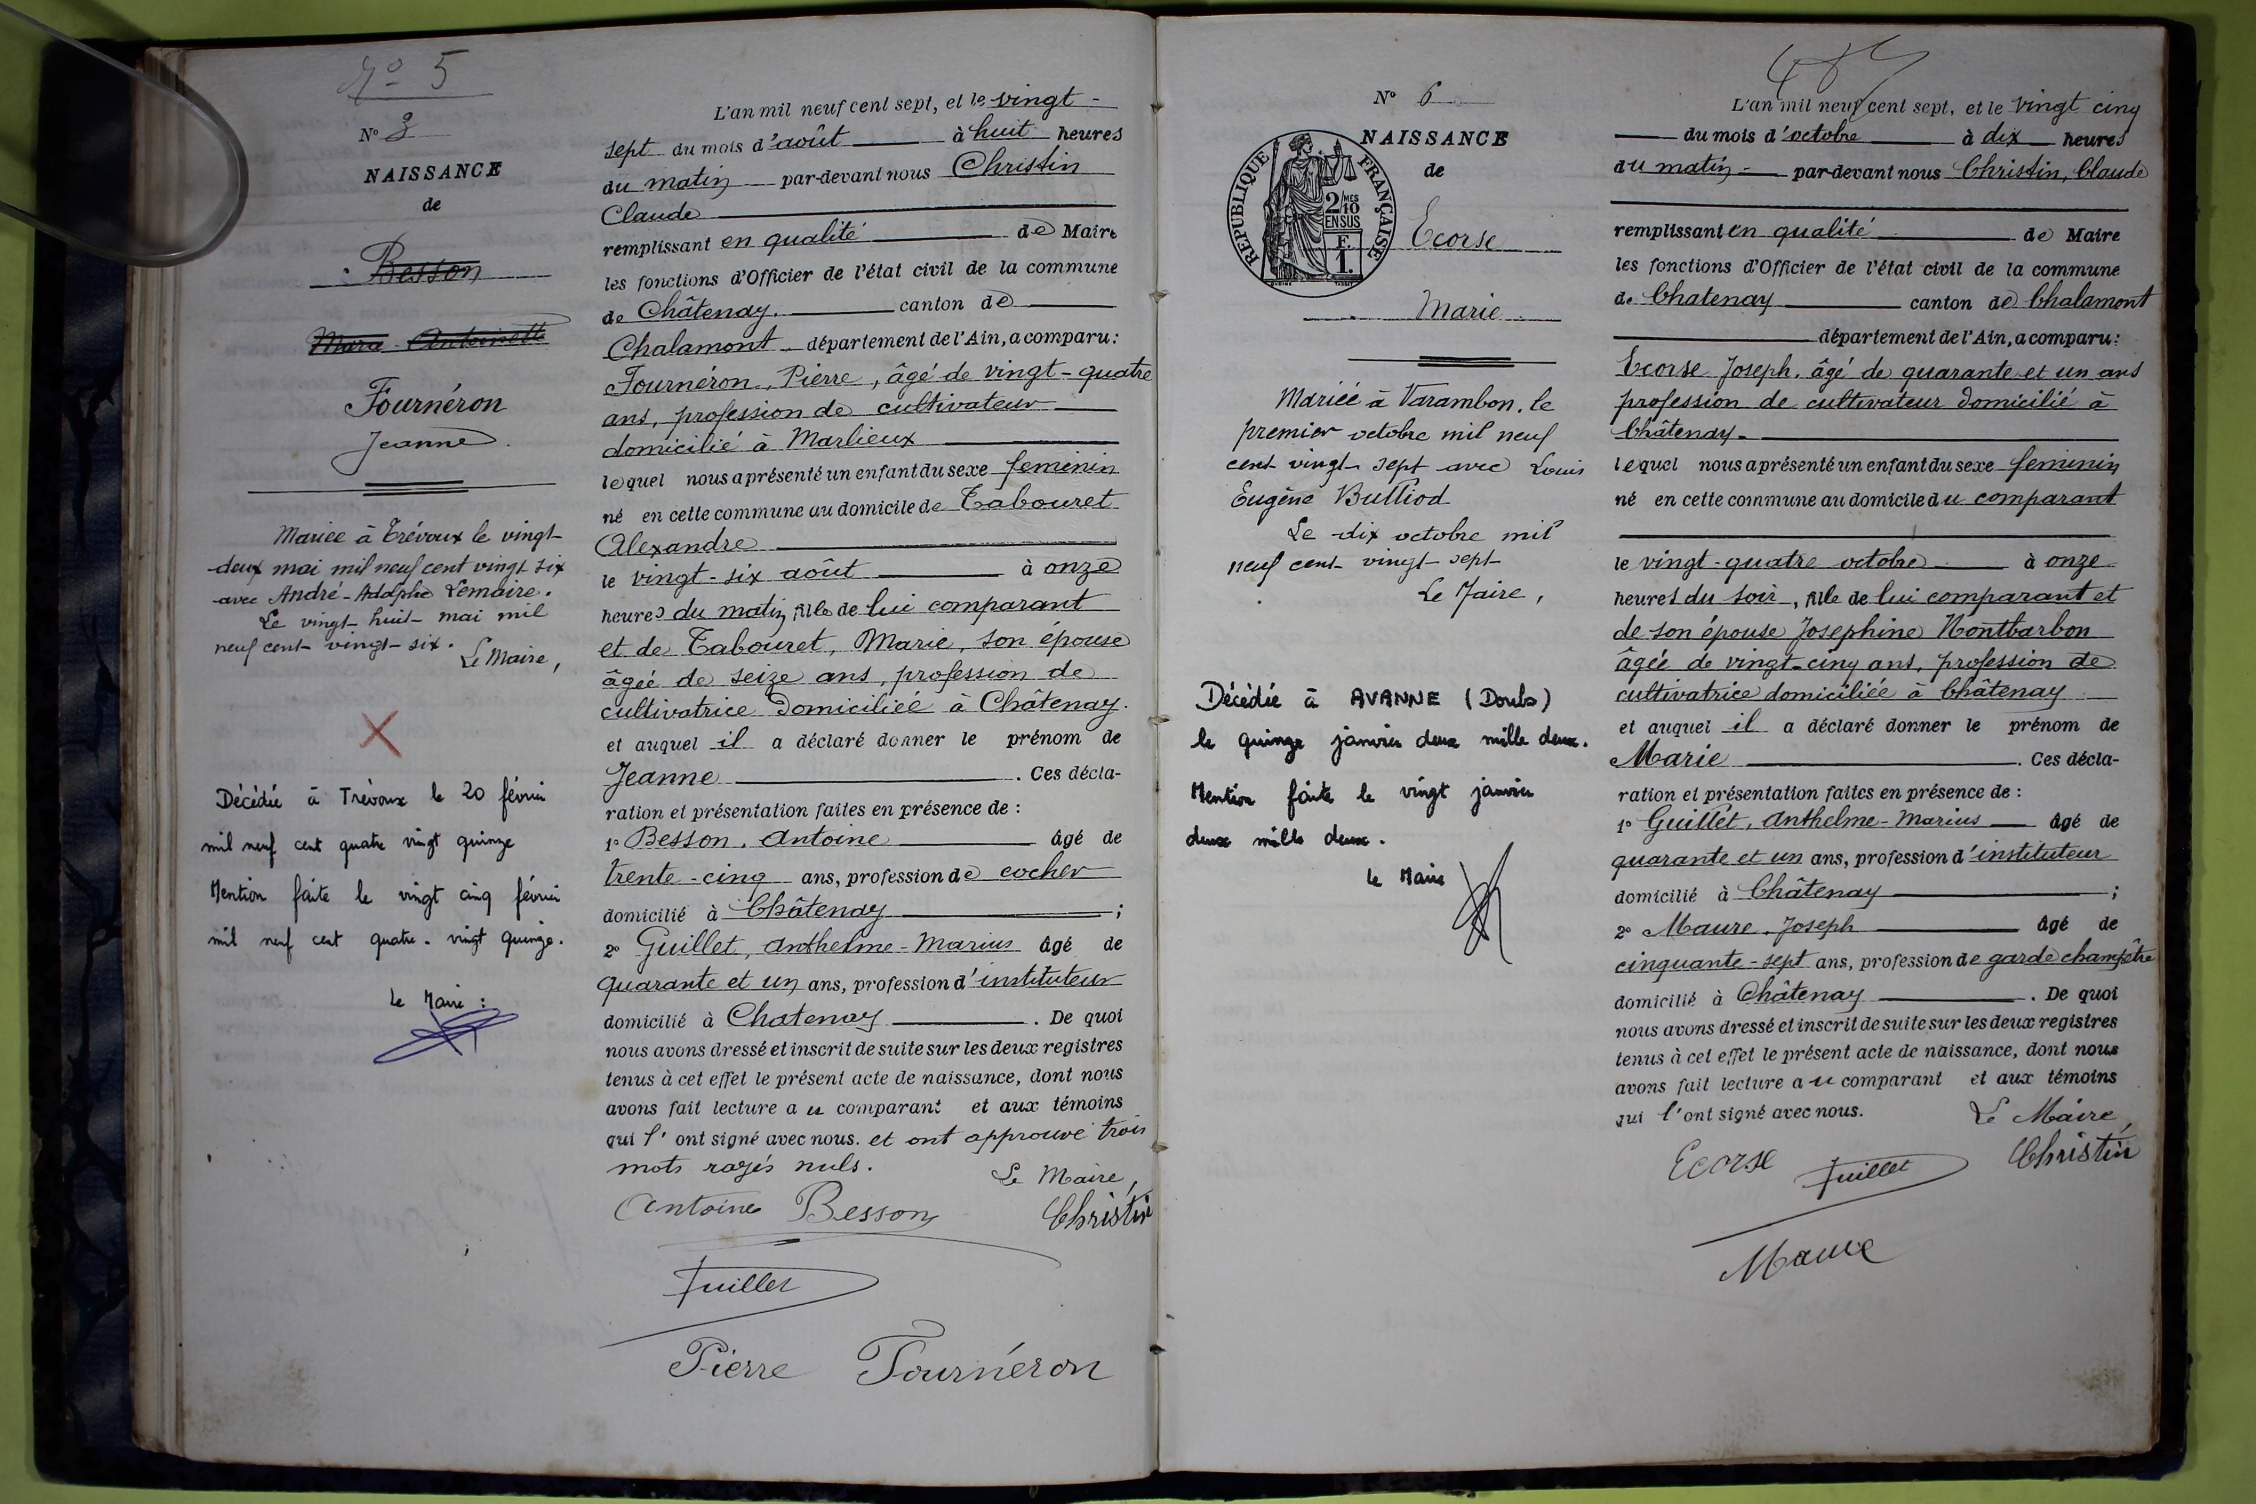 No 5
No 3
NAISSANCE
de
Besson
Marie Antoinette
Fournéron
Jeanne
Mariée à Trévoux le vingt-
deux mai mil neuf cent vingt six
avec André-Adolphe Lemaire.
Le vingt-huit mai mil
neuf cent vingt-six.
Le Maire,
Décédée à Trévoux le 20 février
mil neuf cent quatre vingt quinze
Mention faite le vingt cinq février
mil neuf cent quatre-vingt quinze.
Le Maire :
L'an mil neuf cent sept, et le vingt-
sept du mois d'août à huit heures
du matin par-devant nous Christin
Claude
remplissant en qualité de Maire
les fonctions d'Officier de l'état civil de la commune
de Châtenay. canton de
Chalamont département de l'Ain, a comparu :
Fournéron, Pierre, âgé de vingt-quatre
ans, profession de cultivateur
domicilié à Marlieux
lequel nous a présenté un enfant du sexe feminin
né en cette commune au domicile de Tabouret
Alexandre
le vingt-six août à onze
heures du matin, fille de lui comparant
et de Tabouret, Marie, son épouse
âgée de seize ans, profession de
cultivatrice domiciliée à Châtenay.
et auquel il a déclaré donner le prénom de
Jeanne . Ces décla-
ration et présentation faites en présence de :
1° Besson, Antoine âgé de
trente-cinq ans, profession de cocher
domicilié à Châtenay ;
2° Guillet, Anthelme-Marius âgé de
quarante et un ans, profession d'instituteur
domicilié à Chatenay . De quoi
nous avons dressé et inscrit de suite sur les deux registres
tenus à cet effet le présent acte de naissance, dont nous
avons fait lecture au comparant et aux témoins
qui l'ont signé avec nous. et ont approuvé trois
mots rayés nuls.
Le Maire,
Antoine Besson Christin
Guillet
Pierre Fournéron
No 6
NAISSANCE
de
RÉPUBLIQUE FRANÇAISE
2/10 MES
EN SUS
F.
1.
Ecorse
Marie
Mariée à Varambon, le
premier octobre mil neuf
cent vingt-sept avec Louis
Eugène Bulliod
Le dix octobre mil
neuf cent vingt-sept
Le Maire,
Décédée à AVANNE (Doubs)
le quinze janvier deux mille deux.
Mention faite le vingt janvier
deux mille deux.
Le Maire
L'an mil neuf cent sept, et le vingt cinq
du mois d'octobre à dix heures
du matin par-devant nous Christin, Claude
remplissant en qualité de Maire
les fonctions d'Officier de l'état civil de la commune
de Chatenay canton de Chalamont
département de l'Ain, a comparu :
Ecorse Joseph, âgé de quarante et un ans
profession de cultivateur domicilié à
Châtenay.
lequel nous a présenté un enfant du sexe feminin
né en cette commune au domicile du comparant
le vingt-quatre octobre à onze
heures du soir, fille de lui comparant et
de son épouse Josephine Montbarbon
âgée de vingt-cinq ans, profession de
cultivatrice domiciliée à Châtenay
et auquel il a déclaré donner le prénom de
Marie . Ces décla-
ration et présentation faites en présence de :
1° Guillet, Anthelme-Marius âgé de
quarante et un ans, profession d'instituteur
domicilié à Châtenay ;
2° Maure, Joseph âgé de
cinquante-sept ans, profession de garde champêtre
domicilié à Châtenay . De quoi
nous avons dressé et inscrit de suite sur les deux registres
tenus à cet effet le présent acte de naissance, dont nous
avons fait lecture au comparant et aux témoins
qui l'ont signé avec nous. Le Maire,
Ecorse Guillet Christin
Maure